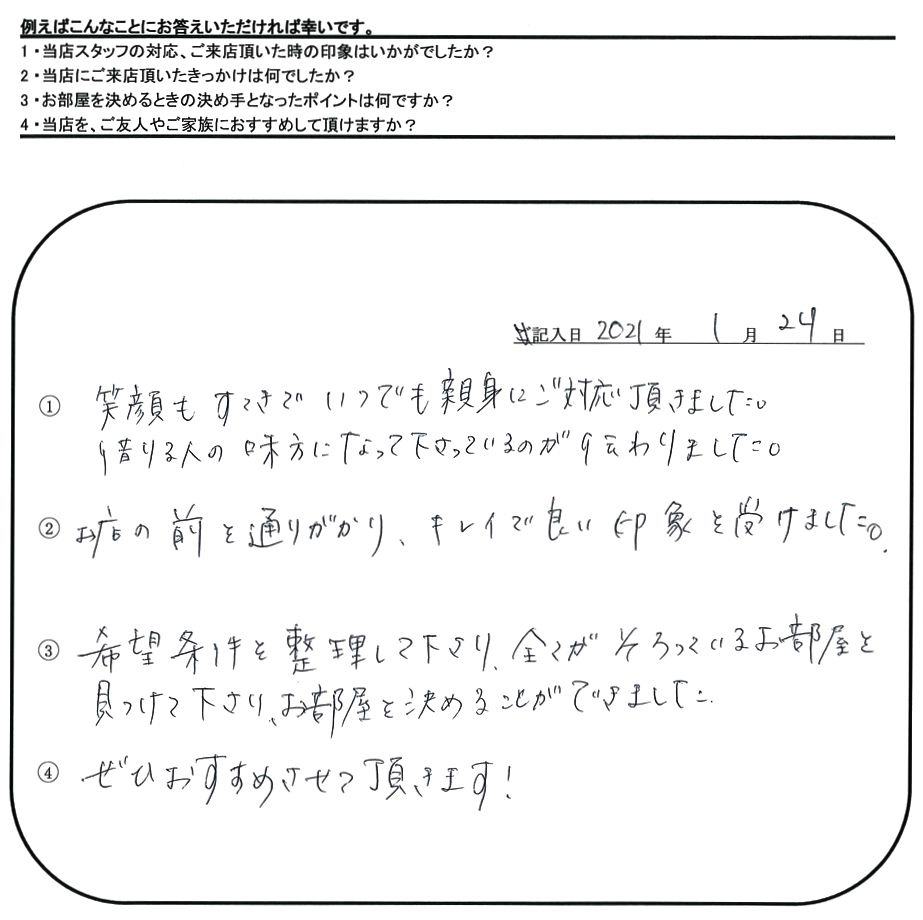 例えばこんなことにお答えいただければ幸いです。
1・当店スタッフの対応、ご来店頂いた時の印象はいかがでしたか？
2・当店にご来店頂いたきっかけは何でしたか？
3・お部屋を決めるときの決め手となったポイントは何ですか？
4・当店を、ご友人やご家族におすすめして頂けますか？
記入日 2021 年 1 月 24 日
① 笑顔もすてきでいつでも親身にご対応頂きました。
借りる人の味方になって下さっているのが伝わりました。
② お店の前を通りがかり、キレイで良い印象を受けました。
③ 希望条件を整理して下さり、全てがそろっているお部屋を
見つけて下さり、お部屋を決めることができました。
④ ぜひおすすめさせて頂きます！